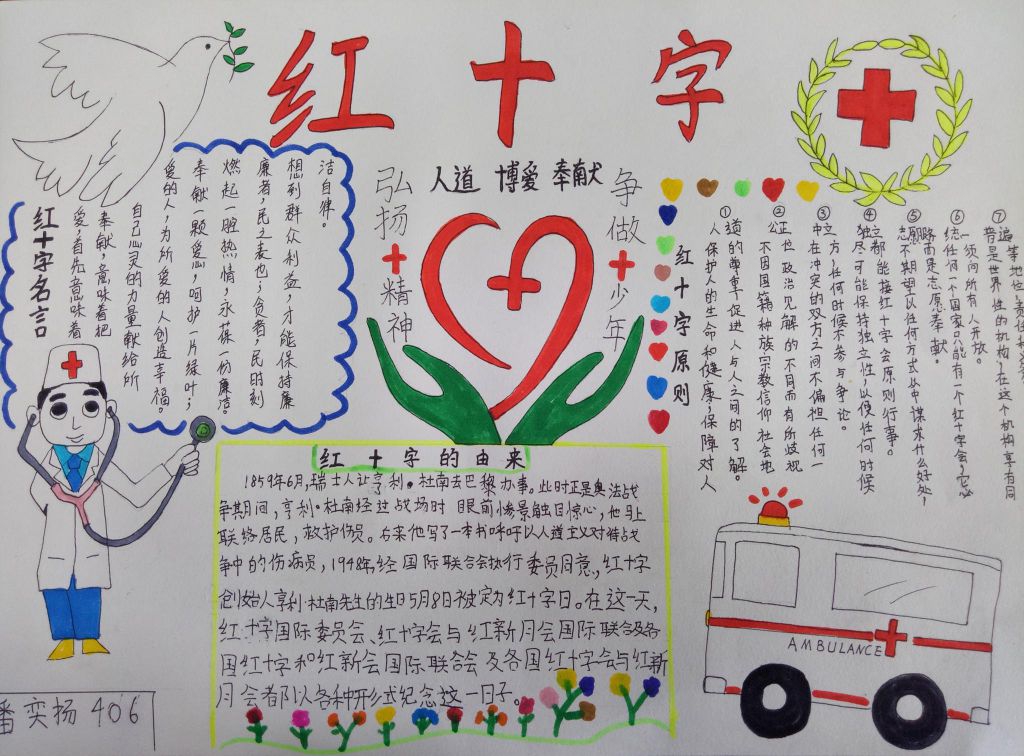 红十字
弘扬十精神
人道 博爱 奉献
争做十少年
红十字名言
爱,首先意味着
奉献,意味着把
自己心灵的力量献给所
爱的人,为所爱的人创造幸福。
奉献一颗爱心,呵护一片绿叶;
燃起一腔热情,永葆一份廉洁。
廉者,民之表也;贪者,民的刻
想到群众利益,才能保持廉
洁自律。
红十字原则
①人保护人的生命和健康;保障对人
道的尊重促进人与人之间的了解。
②公不因国籍种族宗教信仰社会地
正位政治见解的不同而有所歧视
③中在冲突的双方之间不偏担任何一
立方任何时候不参与争论。
④独尽可能保持独立性,以便任何时候
立都能按红十字会原则行事。
⑤志不期望以任何方式从中谋求什么好处,
愿而是志愿奉献。
⑥统任何一个国家只能有一个红十字会,它必
一须向所有人开放。
⑦普是世界性的机构,在这个机构享有同
遍等地位,责任
红十字的由来
1859年6月,瑞士人让亨利·杜南去巴黎办事。此时正是奥法战
争期间,亨利·杜南经过战场时 眼前情景触目惊心,他马上
联络居民,救护伤员。后来他写了一本书呼吁以人道主义对待战
争中的伤病员,1948年,经国际联合会执行委员同意,红十字
创始人亨利·杜南先生的生日5月8日被定为红十字日。在这一天,
红十字国际委员会、红十字会与红新月会国际联合及各
国红十字和红新会国际联合会及各国红十字会与红新
月会都以各种形式纪念这一日子。
AMBULANCE
潘奕扬 406